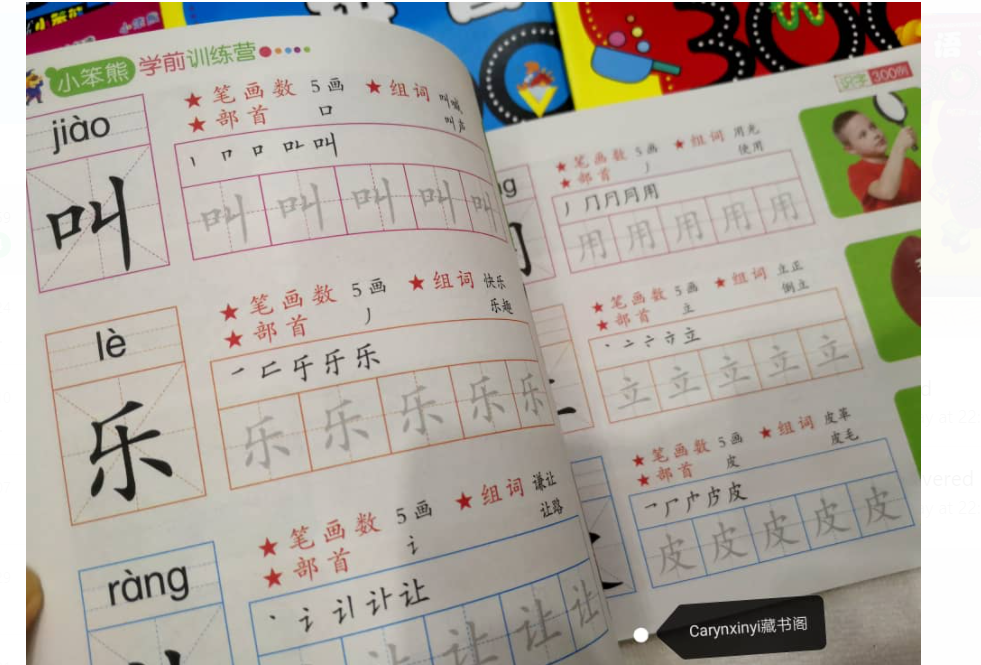 小笨熊
小笨熊 学前训练营
jiào
叫
★笔画数 5画 ★组词 叫喊
★部首 口 叫声
丨 口 叫
叫 叫 叫 叫 叫
lè
乐
★笔画数 5画 ★组词 快乐
★部首 丿 乐趣
乐
乐 乐 乐 乐 乐
ràng
★笔画数 5画 ★组词 谦让
★部首 讠 让路
丶 讠 让
让 让 让
识字 300例
★笔画数 5画 ★组词 用光
★部首 丿 使用
丿 冂 月 用
用 用 用 用 用
★笔画数 5画 ★组词 立正
★部首 立 倒立
丶 亠 立
立 立 立 立 立
★笔画数 5画 ★组词 皮革
★部首 皮 皮毛
皮
皮 皮 皮 皮 皮
Carynxinyi藏书阁